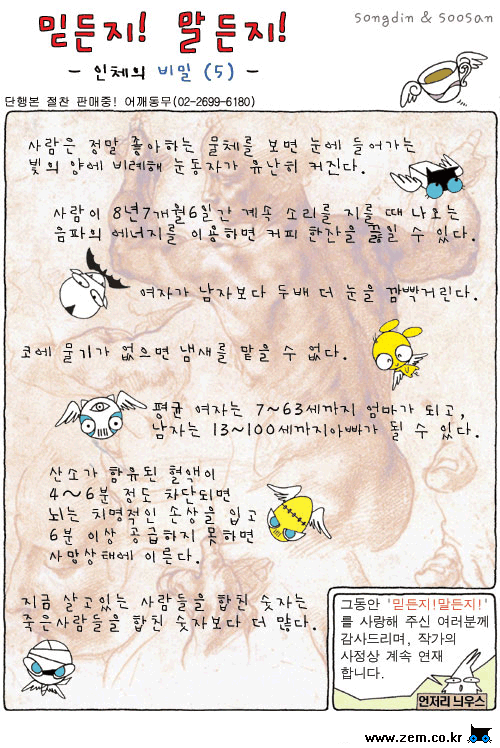 믿든지! 말든지!
songdin & soosan
- 인체의 비밀 (5) -
단행본 절찬 판매중! 어깨동무(02-2699-6180)
사람은 정말 좋아하는 물체를 보면 눈에 들어가는
빛의 양에 비례해 눈동자가 유난히 커진다.
사람이 8년7개월6일간 계속 소리를 지를 때 나오는
음파의 에너지를 이용하면 커피 한잔을 끓일 수 있다.
여자가 남자보다 두배 더 눈을 깜빡거린다.
코에 물기가 없으면 냄새를 맡을 수 없다.
평균 여자는 7~63세까지 엄마가 되고,
남자는 13~100세까지아빠가 될 수 있다.
산소가 함유된 혈액이
4~6분 정도 차단되면
뇌는 치명적인 손상을 입고
6분 이상 공급하지 못하면
사망상태에 이른다.
지금 살고있는 사람들을 합친 숫자는
죽은사람들을 합친 숫자보다 더 많다.
그동안 '믿든지!말든지!'
를 사랑해 주신 여러분께
감사드리며, 작가의
사정상 계속 연재
합니다.
언저리 늬우스
www.zem.co.kr